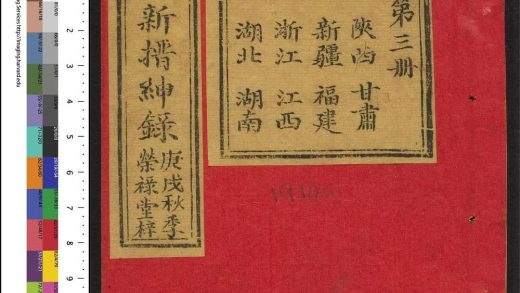 第三册
陝西 甘肅
新疆 福建
浙江 江西
湖北 湖南
新搢紳錄
庚戌秋季
榮祿堂梓
ng Services http://imaging.harvard.edu
2
3
4
5
6
7
8
9